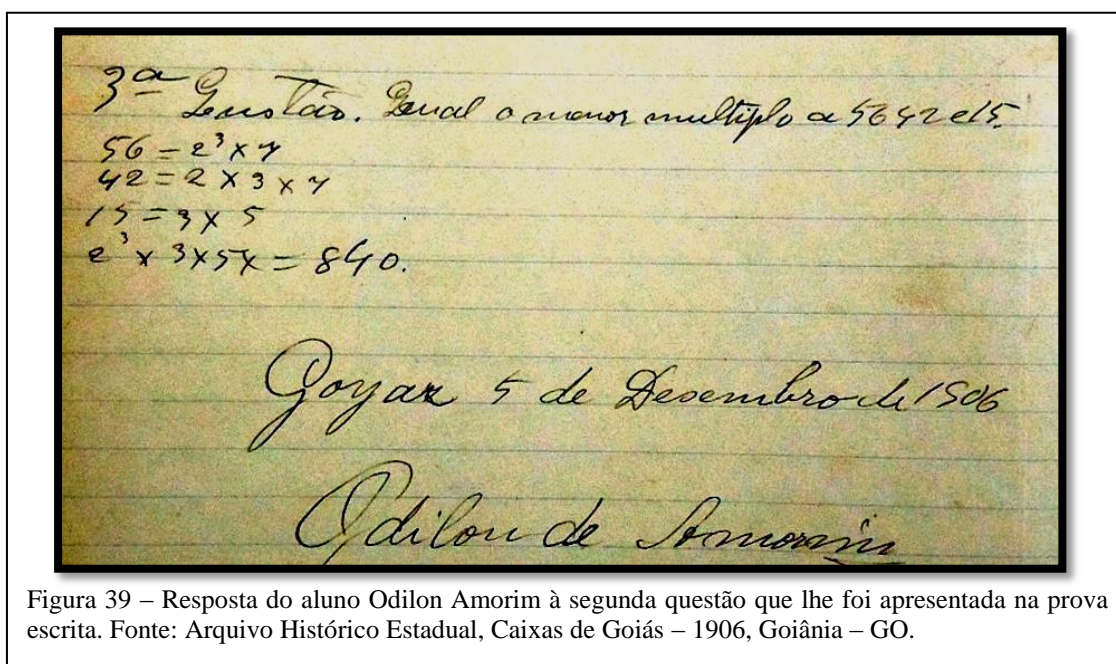 3ª Questão. Qual o menor multiplo a 56 42 e 15.
56 = 2³ x 7
42 = 2 x 3 x 7
15 = 3 x 5
2³ x 3 x 5 x = 840.
Goyaz 5 de Desembro de 1906
Odilon de Amorim
Figura 39 – Resposta do aluno Odilon Amorim à segunda questão que lhe foi apresentada na prova
escrita. Fonte: Arquivo Histórico Estadual, Caixas de Goiás – 1906, Goiânia – GO.